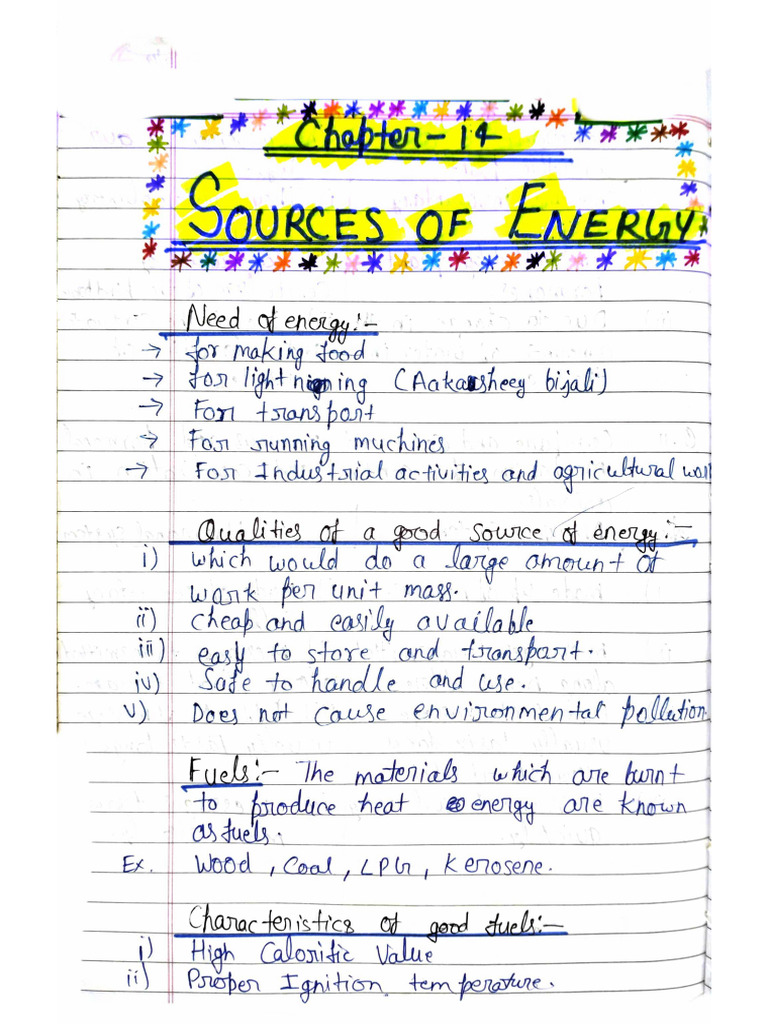 Chapter-14
SOURCES OF ENERGY
Need of energy:-
→ for making food
→ for lightnigning (Aakarsheey bijali)
→ For transport
→ For running muchines
→ For Industrial activities and agricultural
Qualities of a good source of energy:-
i) which would do a large amount of
work per unit mass.
ii) cheap and easily available
iii) easy to store and transpart.
iv) Safe to handle and use.
v) Does not cause environmental pollution
Fuels:- The materials which are burnt
to produce heat energy are known
as fuels.
Ex. Wood, Coal, LPG, Kerosene.
Characteristics of good fuels:-
i) High Calorific Value
ii) Proper Ignition temperature.